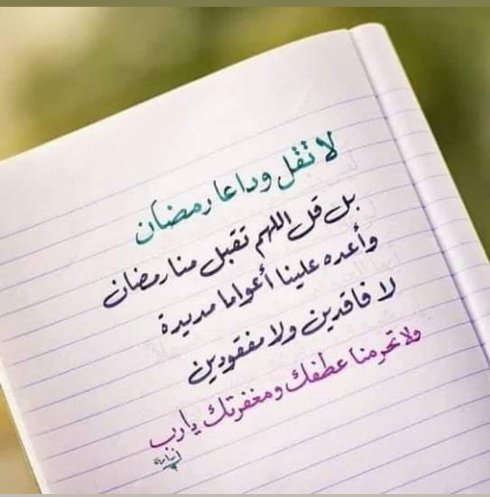 لا تقل وداعا رمضان
بل قل اللهم تقبل منا رمضان
وأعده علينا أعواما مديدة
لا فاقدين ولا مفقودين
ولا تحرمنا عطفك ومغفرتك يارب